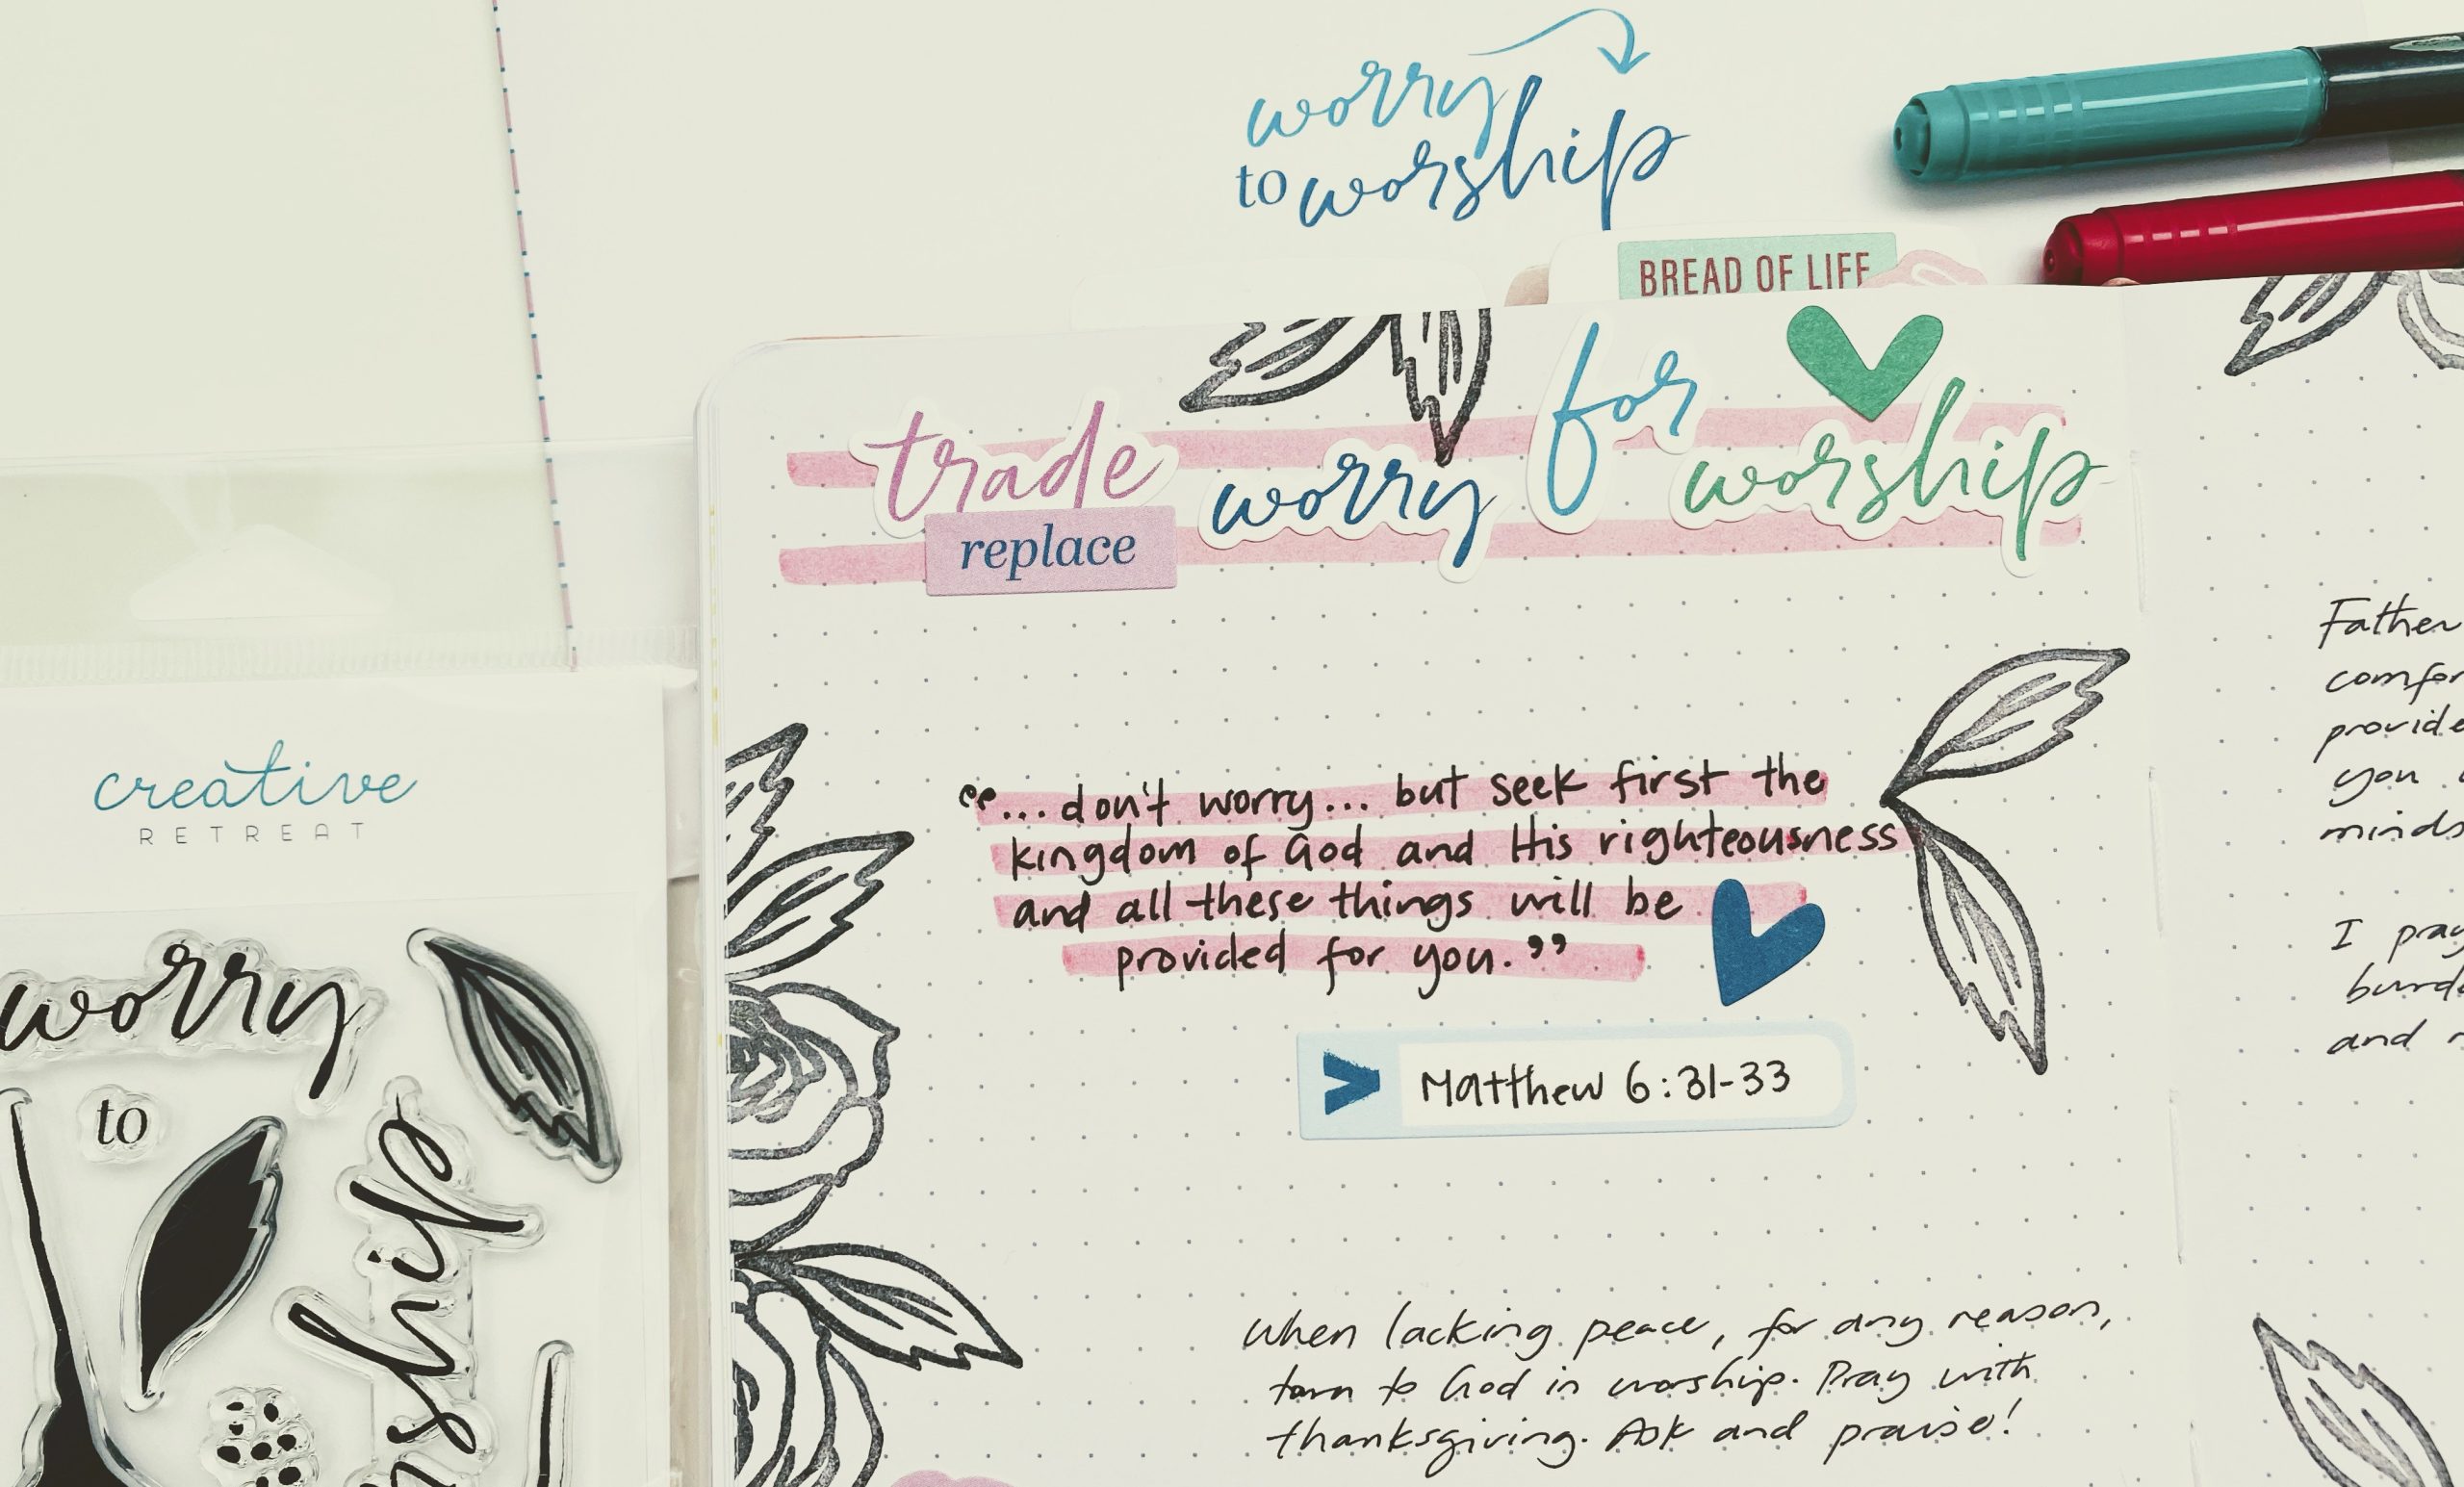 worry
to worship
BREAD OF LIFE
trade worry for worship
replace
“...don't worry... but seek first the
kingdom of God and His righteousness
and all these things will be
provided for you.”
Matthew 6:31-33
When lacking peace, for any reason,
turn to God in worship. Pray with
thanksgiving. Ask and praise!
creative
RETREAT
worry
to
Father
you
minds
I
and